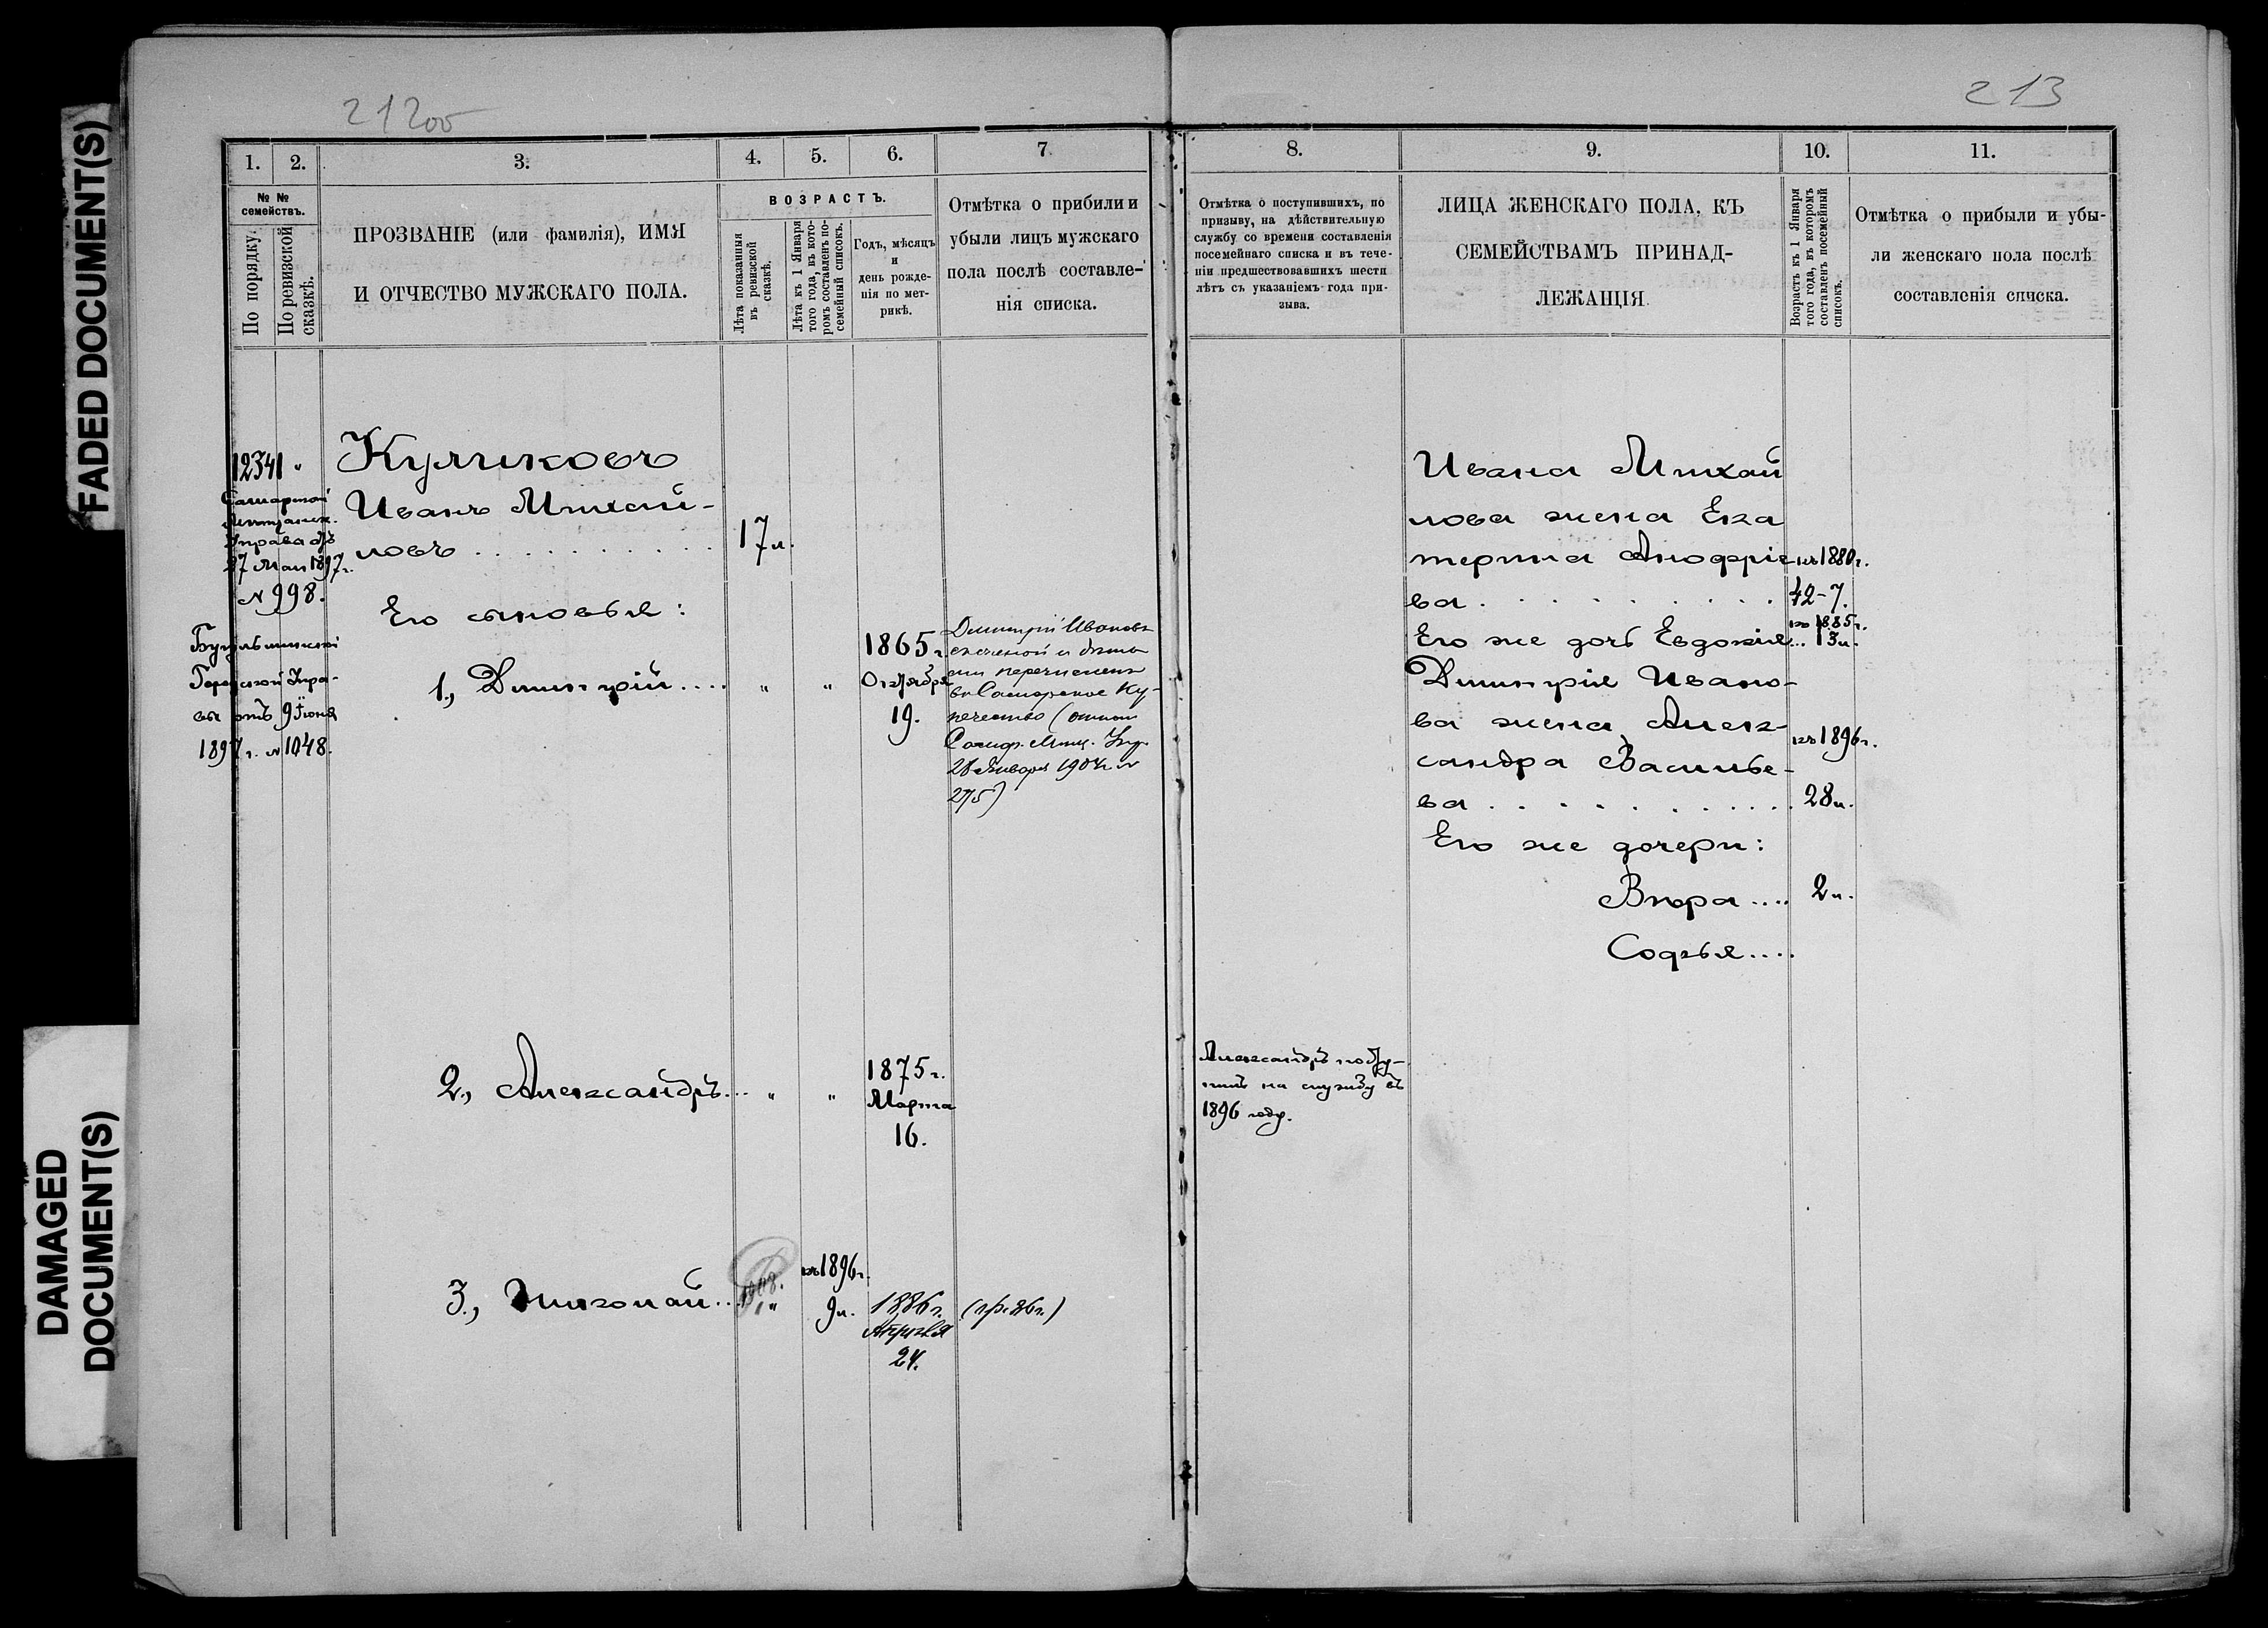 FADED DOCUMENT(S)
DAMAGED
DOCUMENT(S)
212об
213
1. 2. 3. 4. 5. 6. 7
№ №
семействъ.
По порядку.
По ревизской
сказкѣ.
ПРОЗВАНІЕ (или фамилія), ИМЯ
И ОТЧЕСТВО МУЖСКАГО ПОЛА.
ВОЗРАСТЪ.
Лѣта показанныя
въ ревизской
сказкѣ.
Лѣта къ 1 Января
того года, въ кото-
ромъ составленъ по-
семейный списокъ.
Годъ, мѣсяцъ
и
день рожде-
нія по мет-
рикѣ.
Отмѣтка о прибыли и
убыли лицъ мужскаго
пола послѣ составле-
нія списка.
12341 "
Самарской
Мѣщанск.
Управа отъ
27 Мая 1897 г.
№ 998.
Бугульминской
Городской Упра-
вы отъ 9 Іюня
1897 г. № 1048.
Куликовъ
Иванъ Михай-
ловъ . . . . . . . . . . . 17 л.
Его сыновья:
1., Димитрій .... " "
1865 г.
Октября
19.
Димитрій Ивановъ
съ женой и дѣть
ми перечисленъ
въ Самарское Ку-
печество (отнош
Самар. Мѣщ. Упр.
28 Января 1904 г. №
275)
2., Александръ... " "
1875 г.
Марта
16.
3., Николай... 1908. "
къ 1896 г.
9 л.
1886 г.
Апрѣля
24.
(пр. 86 г.)
8. 9. 10. 11.
Отмѣтка о поступившихъ, по
призыву, на дѣйствительную
службу со времени составленія
посемейнаго списка и въ тече-
ніи предшествовавшихъ шести
лѣтъ съ указаніемъ года при-
зыва.
ЛИЦА ЖЕНСКАГО ПОЛА, КЪ
СЕМЕЙСТВАМЪ ПРИНАД-
ЛЕЖАЩІЯ
Возрастъ къ 1 Января
того года, въ которомъ
составленъ посемейный
списокъ.
Отмѣтка о прибыли и убы-
ли женскаго пола послѣ
составленія списка.
Ивана Михай
лова жена Ека
терина Анофріе къ 1880 г.
ва . . . . . . . . . 42-7.
къ 1885 г.
Его же дочь Евдокія... 13 л.
Димитрія Ивано-
ва жена Алек- къ 1896 г.
сандра Василье-
ва . . . . . . . . . . 28 л.
Его же дочери:
Вѣра .... 2 л.
Софья....
Александръ посту-
пилъ на службу въ
1896 году.